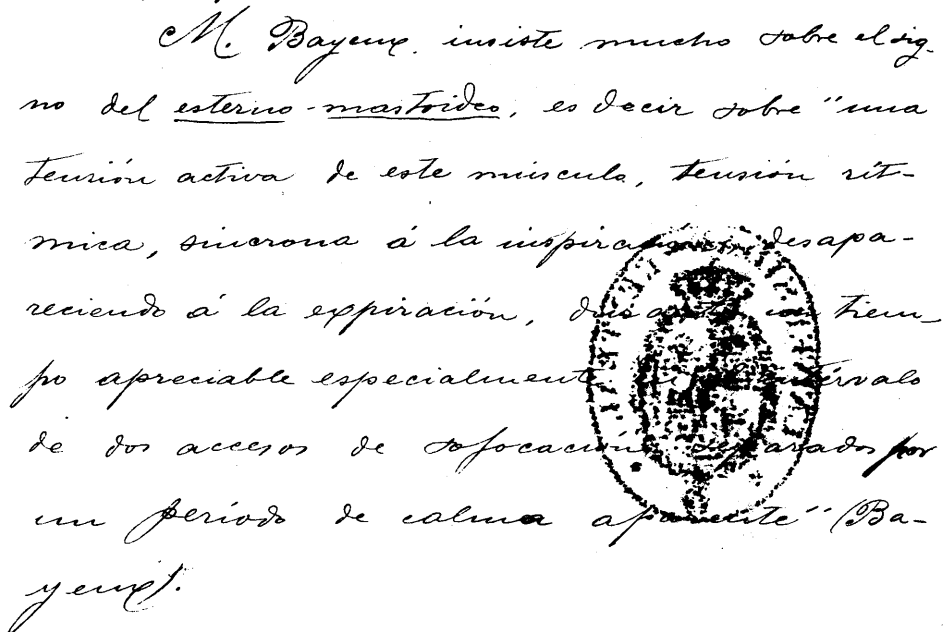 M. Bayeux, insiste mucho sobre el sig-
no del esterno-mastoideo, es decir sobre "una
tensión activa de este músculo, tensión rít-
mica, sincrona á la inspiración, desapa-
reciendo á la expiración, durante un tiem-
po apreciable especialmente en el intérvalo
de dos accesos de sofocación separados por
un período de calma aparente" (Ba-
yeux).